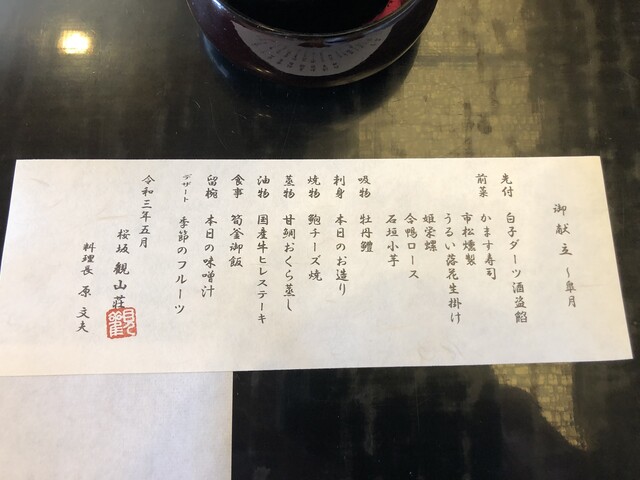 御献立 〜皐月
先付 白子ダーツ酒盗餡
前菜 かます寿司
市松燻製
うるい落花生掛け
姫栄螺
合鴨ロース
石垣小芋
吸物 牡丹鱧
刺身 本日のお造り
焼物 鮑チーズ焼
蒸物 甘鯛おくら蒸し
油物 国産牛ヒレステーキ
食事 筍釜御飯
留椀 本日の味噌汁
デザート 季節のフルーツ
令和三年五月
桜坂 観山荘
料理長 原 文夫